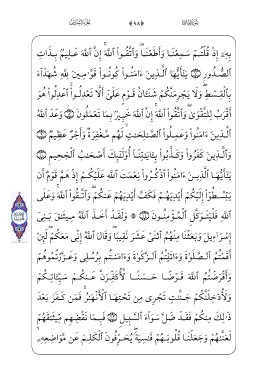 بِهِۦٓ إِذۡ قُلۡتُمۡ سَمِعۡنَا وَأَطَعۡنَاۖ وَٱتَّقُواْ ٱللَّهَۚ إِنَّ ٱللَّهَ عَلِيمُۢ بِذَاتِ
ٱلصُّدُورِ ۝ يَٰٓأَيُّهَا ٱلَّذِينَ ءَامَنُواْ كُونُواْ قَوَّٰمِينَ لِلَّهِ شُهَدَآءَ
بِٱلۡقِسۡطِۖ وَلَا يَجۡرِمَنَّكُمۡ شَنَـَٔانُ قَوۡمٍ عَلَىٰٓ أَلَّا تَعۡدِلُواْۚ ٱعۡدِلُواْ هُوَ
أَقۡرَبُ لِلتَّقۡوَىٰۖ وَٱتَّقُواْ ٱللَّهَۚ إِنَّ ٱللَّهَ خَبِيرُۢ بِمَا تَعۡمَلُونَ ۝ وَعَدَ ٱللَّهُ
ٱلَّذِينَ ءَامَنُواْ وَعَمِلُواْ ٱلصَّٰلِحَٰتِ لَهُم مَّغۡفِرَةٞ وَأَجۡرٌ عَظِيمٞ ۝
وَٱلَّذِينَ كَفَرُواْ وَكَذَّبُواْ بِـَٔايَٰتِنَآ أُوْلَٰٓئِكَ أَصۡحَٰبُ ٱلۡجَحِيمِ ۝
يَٰٓأَيُّهَا ٱلَّذِينَ ءَامَنُواْ ٱذۡكُرُواْ نِعۡمَتَ ٱللَّهِ عَلَيۡكُمۡ إِذۡ هَمَّ قَوۡمٌ أَن
يَبۡسُطُوٓاْ إِلَيۡكُمۡ أَيۡدِيَهُمۡ فَكَفَّ أَيۡدِيَهُمۡ عَنكُمۡۖ وَٱتَّقُواْ ٱللَّهَۚ وَعَلَى
ٱللَّهِ فَلۡيَتَوَكَّلِ ٱلۡمُؤۡمِنُونَ ۝ ۞ وَلَقَدۡ أَخَذَ ٱللَّهُ مِيثَٰقَ بَنِيٓ
إِسۡرَٰٓءِيلَ وَبَعَثۡنَا مِنۡهُمُ ٱثۡنَيۡ عَشَرَ نَقِيبٗاۖ وَقَالَ ٱللَّهُ إِنِّي مَعَكُمۡۖ لَئِنۡ
أَقَمۡتُمُ ٱلصَّلَوٰةَ وَءَاتَيۡتُمُ ٱلزَّكَوٰةَ وَءَامَنتُم بِرُسُلِي وَعَزَّرۡتُمُوهُمۡ
وَأَقۡرَضۡتُمُ ٱللَّهَ قَرۡضًا حَسَنٗا لَّأُكَفِّرَنَّ عَنكُمۡ سَيِّـَٔاتِكُمۡ
وَلَأُدۡخِلَنَّكُمۡ جَنَّٰتٖ تَجۡرِي مِن تَحۡتِهَا ٱلۡأَنۡهَٰرُۚ فَمَن كَفَرَ بَعۡدَ
ذَٰلِكَ مِنكُمۡ فَقَدۡ ضَلَّ سَوَآءَ ٱلسَّبِيلِ ۝ فَبِمَا نَقۡضِهِم مِّيثَٰقَهُمۡ
لَعَنَّٰهُمۡ وَجَعَلۡنَا قُلُوبَهُمۡ قَٰسِيَةٗۖ يُحَرِّفُونَ ٱلۡكَلِمَ عَن مَّوَاضِعِهِۦ